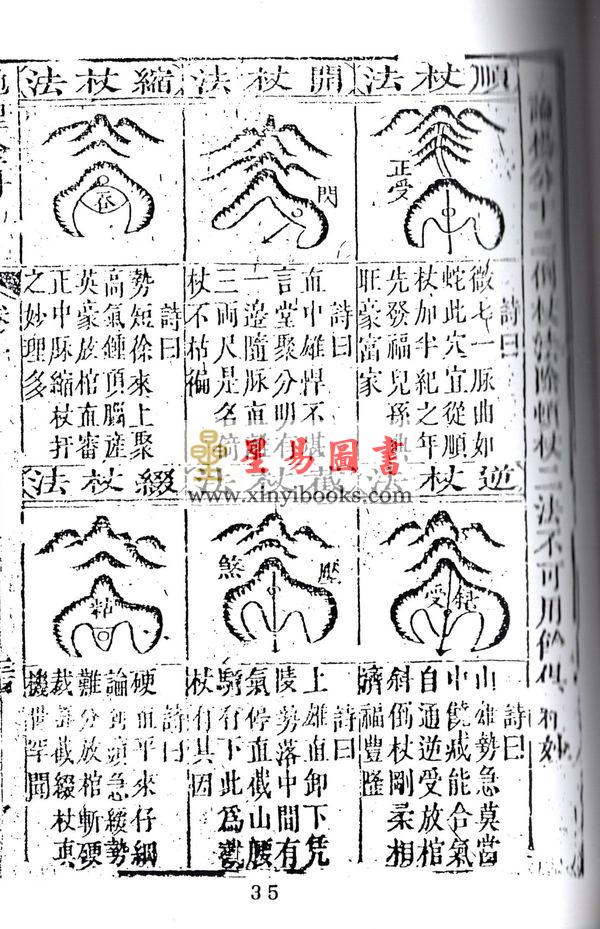 論楊公十二倒杖法除頓杖二法不可用
順杖法
正受
詩曰
微七一脉曲如
蛇此穴宜從順
杖加半紀之年
先發福兒孫
旺豪富家
開杖法
閃
詩曰
直中雄悍不堪
言堂聚分明有
一邊隨脉直
三兩尺是名倚
杖不枯褊
縮杖法
吞
詩曰
勢短徐來上聚
高氣鍾頂腦產
英豪放棺直審
正中脉縮杖扦
之妙理多
逆杖
受
詩曰
山雄勢急莫當
中饒減能合氣
自通逆受放棺
斜倒杖剛柔相
濟福豐隆
截杖法
壓
煞
詩曰
上雄直卸下凭
陵勢落中間有
氣停直截山腰
騎行下此為截
杖有其因
綴杖法
粘
詩曰
硬直平來仔細
論到頭急緩勢
難分放棺斬硬
裁截綴杖真
機世罕聞
星易圖書
www.xinyibooks.com
35